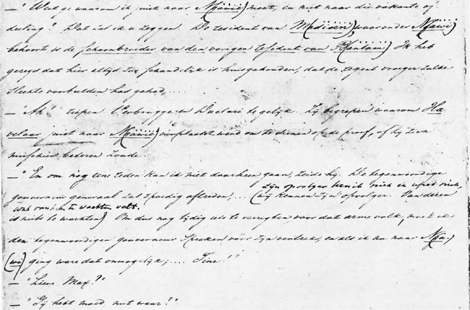 — "Wat gy waarom ik niet naar Ngawi) moet, en niet naar die vakante af-
deeling? Dat zal ik u zeggen. De resident van Madioen, waaronder Ngawi)
behoort is de schoonbroeder van den vorigen resident van
gezegd dat hier altyd zoo schandelyk is huisgehouden, dat de regent vroeger zulke
slechte voorbeelden had gehad....
— "Ah!" riepen Verbrugge en Duclari te gelyk. Zy begrepen waarom Ha-
velaar niet naar Ngawi) verplaatst werd om te dienen op de proef, of hy zich
misschien beteren zoude.
— "En om nog een reden kan ik niet daarheen gaan, zeide hy. De tegenwoordige
gouverneur generaal zal spoedig aftreden,....
zyn opvolger ken ik
is niets te wachten) Om dus nog tydig iets te verrigten voor dat arme volk, moet ik
den tegenwoordigen gouverneur spreken vóór zyn vertrek, en als ik nu naar Nga,
(wi) ging ware dat onmogelyk;.... Tine!"
— "Lieve Max?"
— "Gy hebt moed niet waar?"